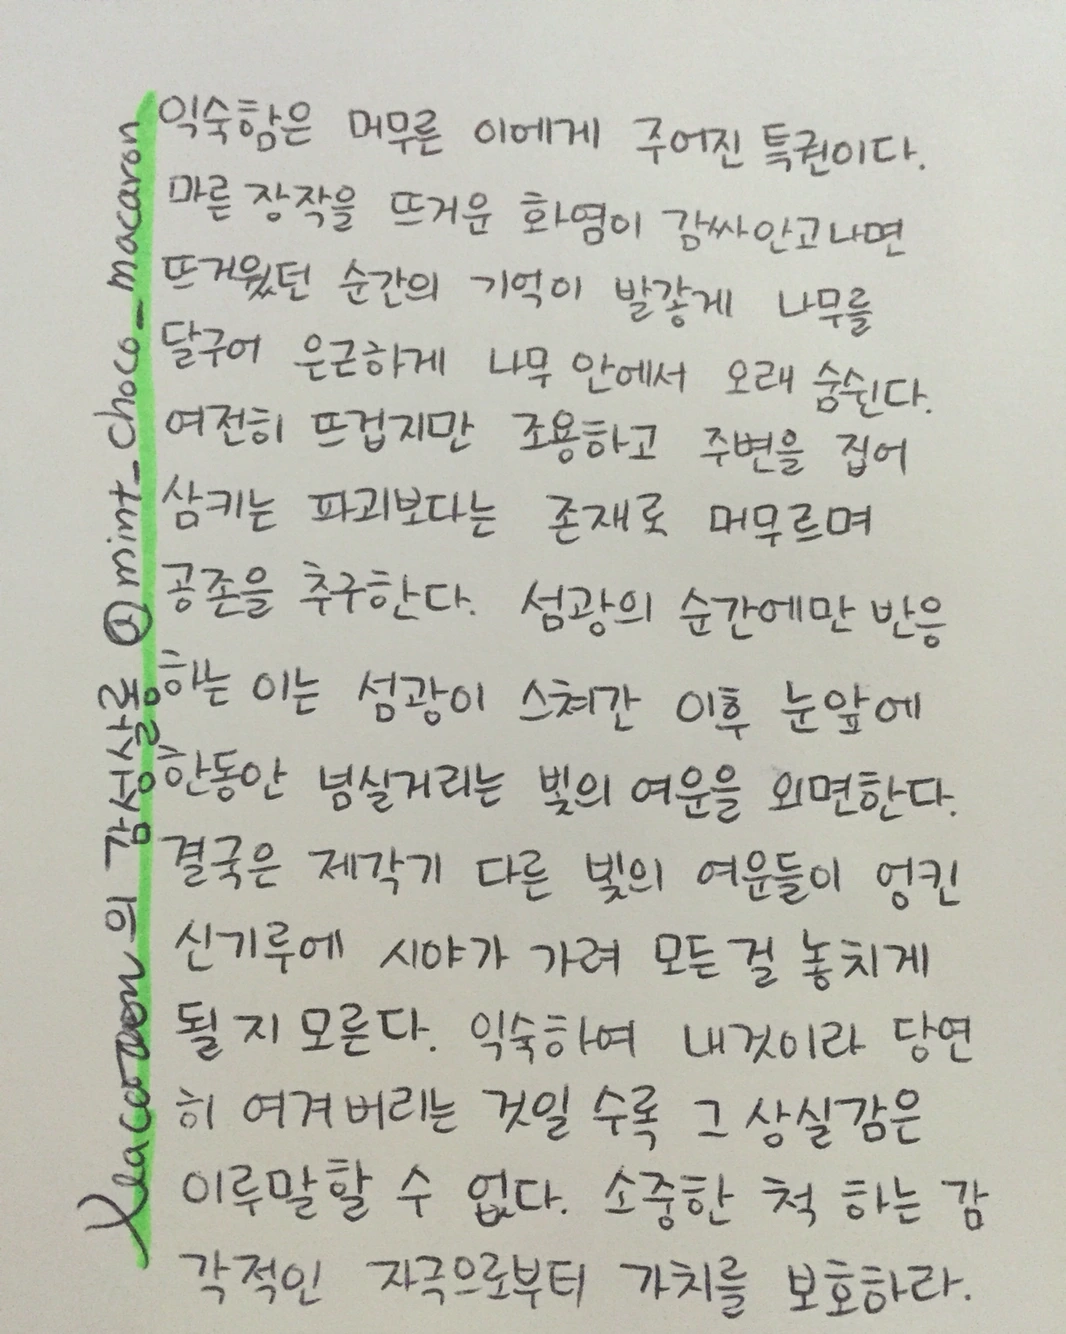 익숙함은 머무른 이에게 주어진 특권이다.
마른 장작을 뜨거운 화염이 감싸안고나면
뜨거웠던 순간의 기억이 발갛게 나무를
달구어 은근하게 나무 안에서 오래 숨쉰다.
여전히 뜨겁지만 조용하고 주변을 집어
삼키는 파괴보다는 존재로 머무르며
공존을 추구한다. 섬광의 순간에만 반응
하는 이는 섬광이 스쳐간 이후 눈앞에
한동안 넘실거리는 빛의 여운을 외면한다.
결국은 제각기 다른 빛의 여운들이 엉킨
신기루에 시야가 가려 모든걸 놓치게
될 지 모른다. 익숙하여 내것이라 당연
히 여겨버리는 것일 수록 그 상실감은
이루말할 수 없다. 소중한 척 하는 감
각적인 자극으로부터 가치를 보호하라.
의 감성살롱 @mint_choco_macaron